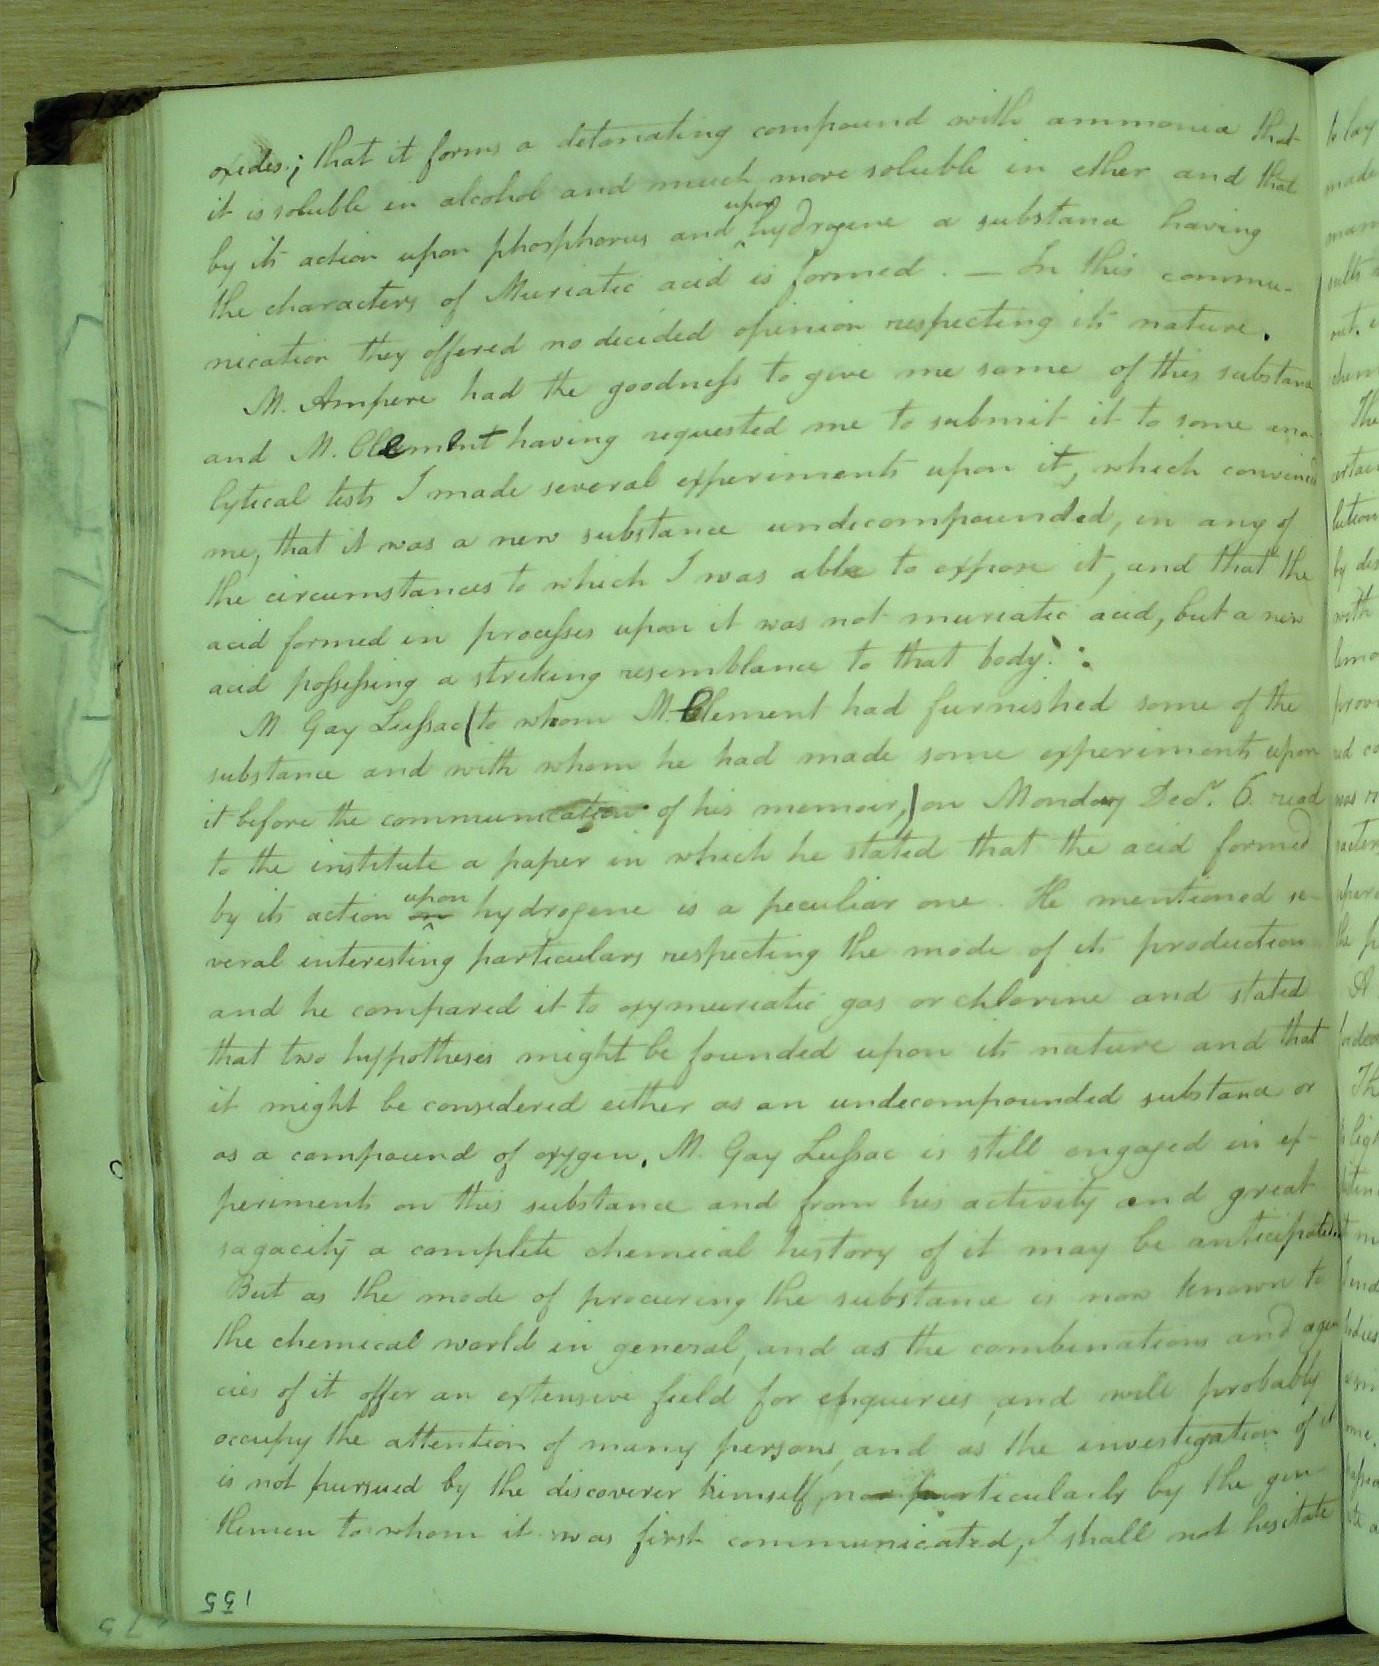 oxides; that it forms a detonating compound with ammonia that
it is soluble in alcohol and much more soluble in ether and that
by its action upon phosphorus and upon hydrogene a substance having
the characters of Muriatic acid is formed. — In this commu-
nication they offered no decided opinion respecting its nature.
M. Ampere had the goodness to give me some of this substance
and M. Clement having requested me to submit it to some ana-
lytical tests I made several experiments upon it, which convinced
me, that it was a new substance undecompounded, in any of
the circumstances to which I was able to expose it, and that the
acid formed in processes upon it was not muriatic acid, but a new
acid possessing a striking resemblance to that body.
M Gay Lussac (to whom M. Clement had furnished some of the
substance and with whom he had made some experiments upon
it before the communication of his memoir,) on Monday Decr. 6. read
to the institute a paper in which he stated that the acid formed
by its action on upon hydrogene is a peculiar one. He mentioned se-
veral interesting particulars respecting the mode of its production
and he compared it to oxymuriatic gas or chlorine and stated
that two hypotheses might be founded upon its nature and that
it might be considered either as an undecompounded substance or
as a compound of oxygen. M. Gay Lussac is still engaged in ex-
periments on this substance and from his activity and great
sagacity a complete chemical history of it may be anticipated.
But as the mode of procuring the substance is now known to
the chemical world in general, and as the combinations and agen
cies of it offer an extensive field for enquiries and will probably
occupy the attention of many persons, and as the investigation of it
is not pursued by the discoverer himself, nor particularly by the gen-
tlemen to whom it was first communicated, I shall not hesitate
135